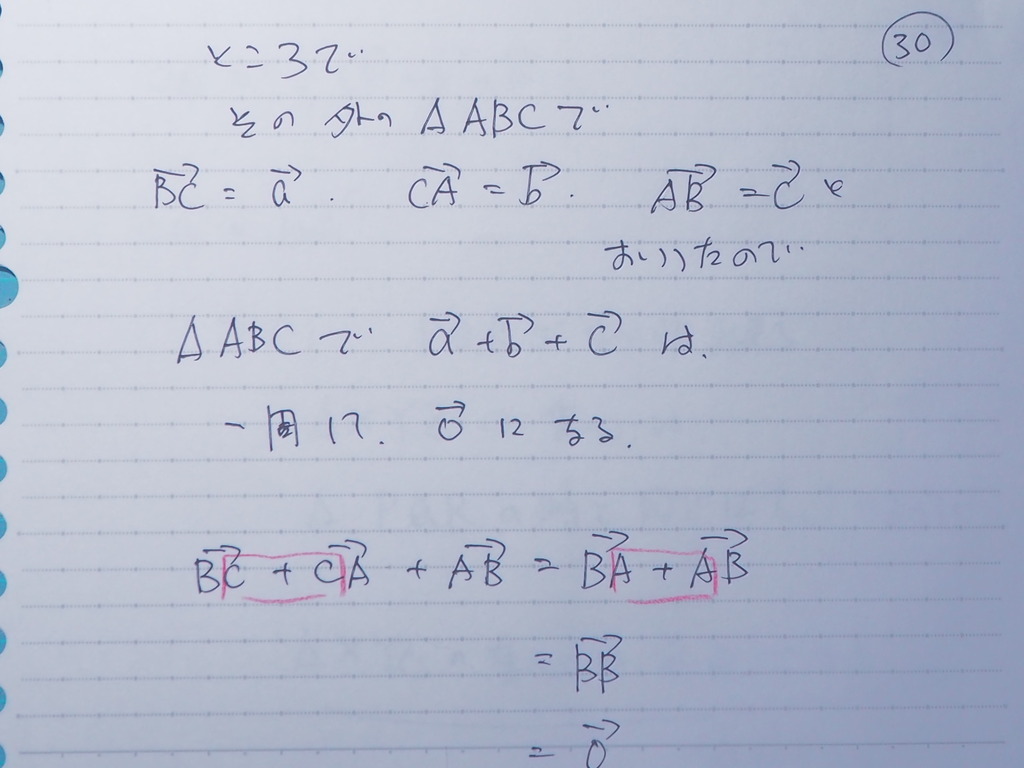 30
と=3で
その外の △ABCで
→BC = →a . →CA = →b . →AB = →c と
おいたので
△ABCで →a + →b + →c は、
一周して. →0 になる.
→BC + →CA + →AB = →BA + →AB
= →BB
= →0